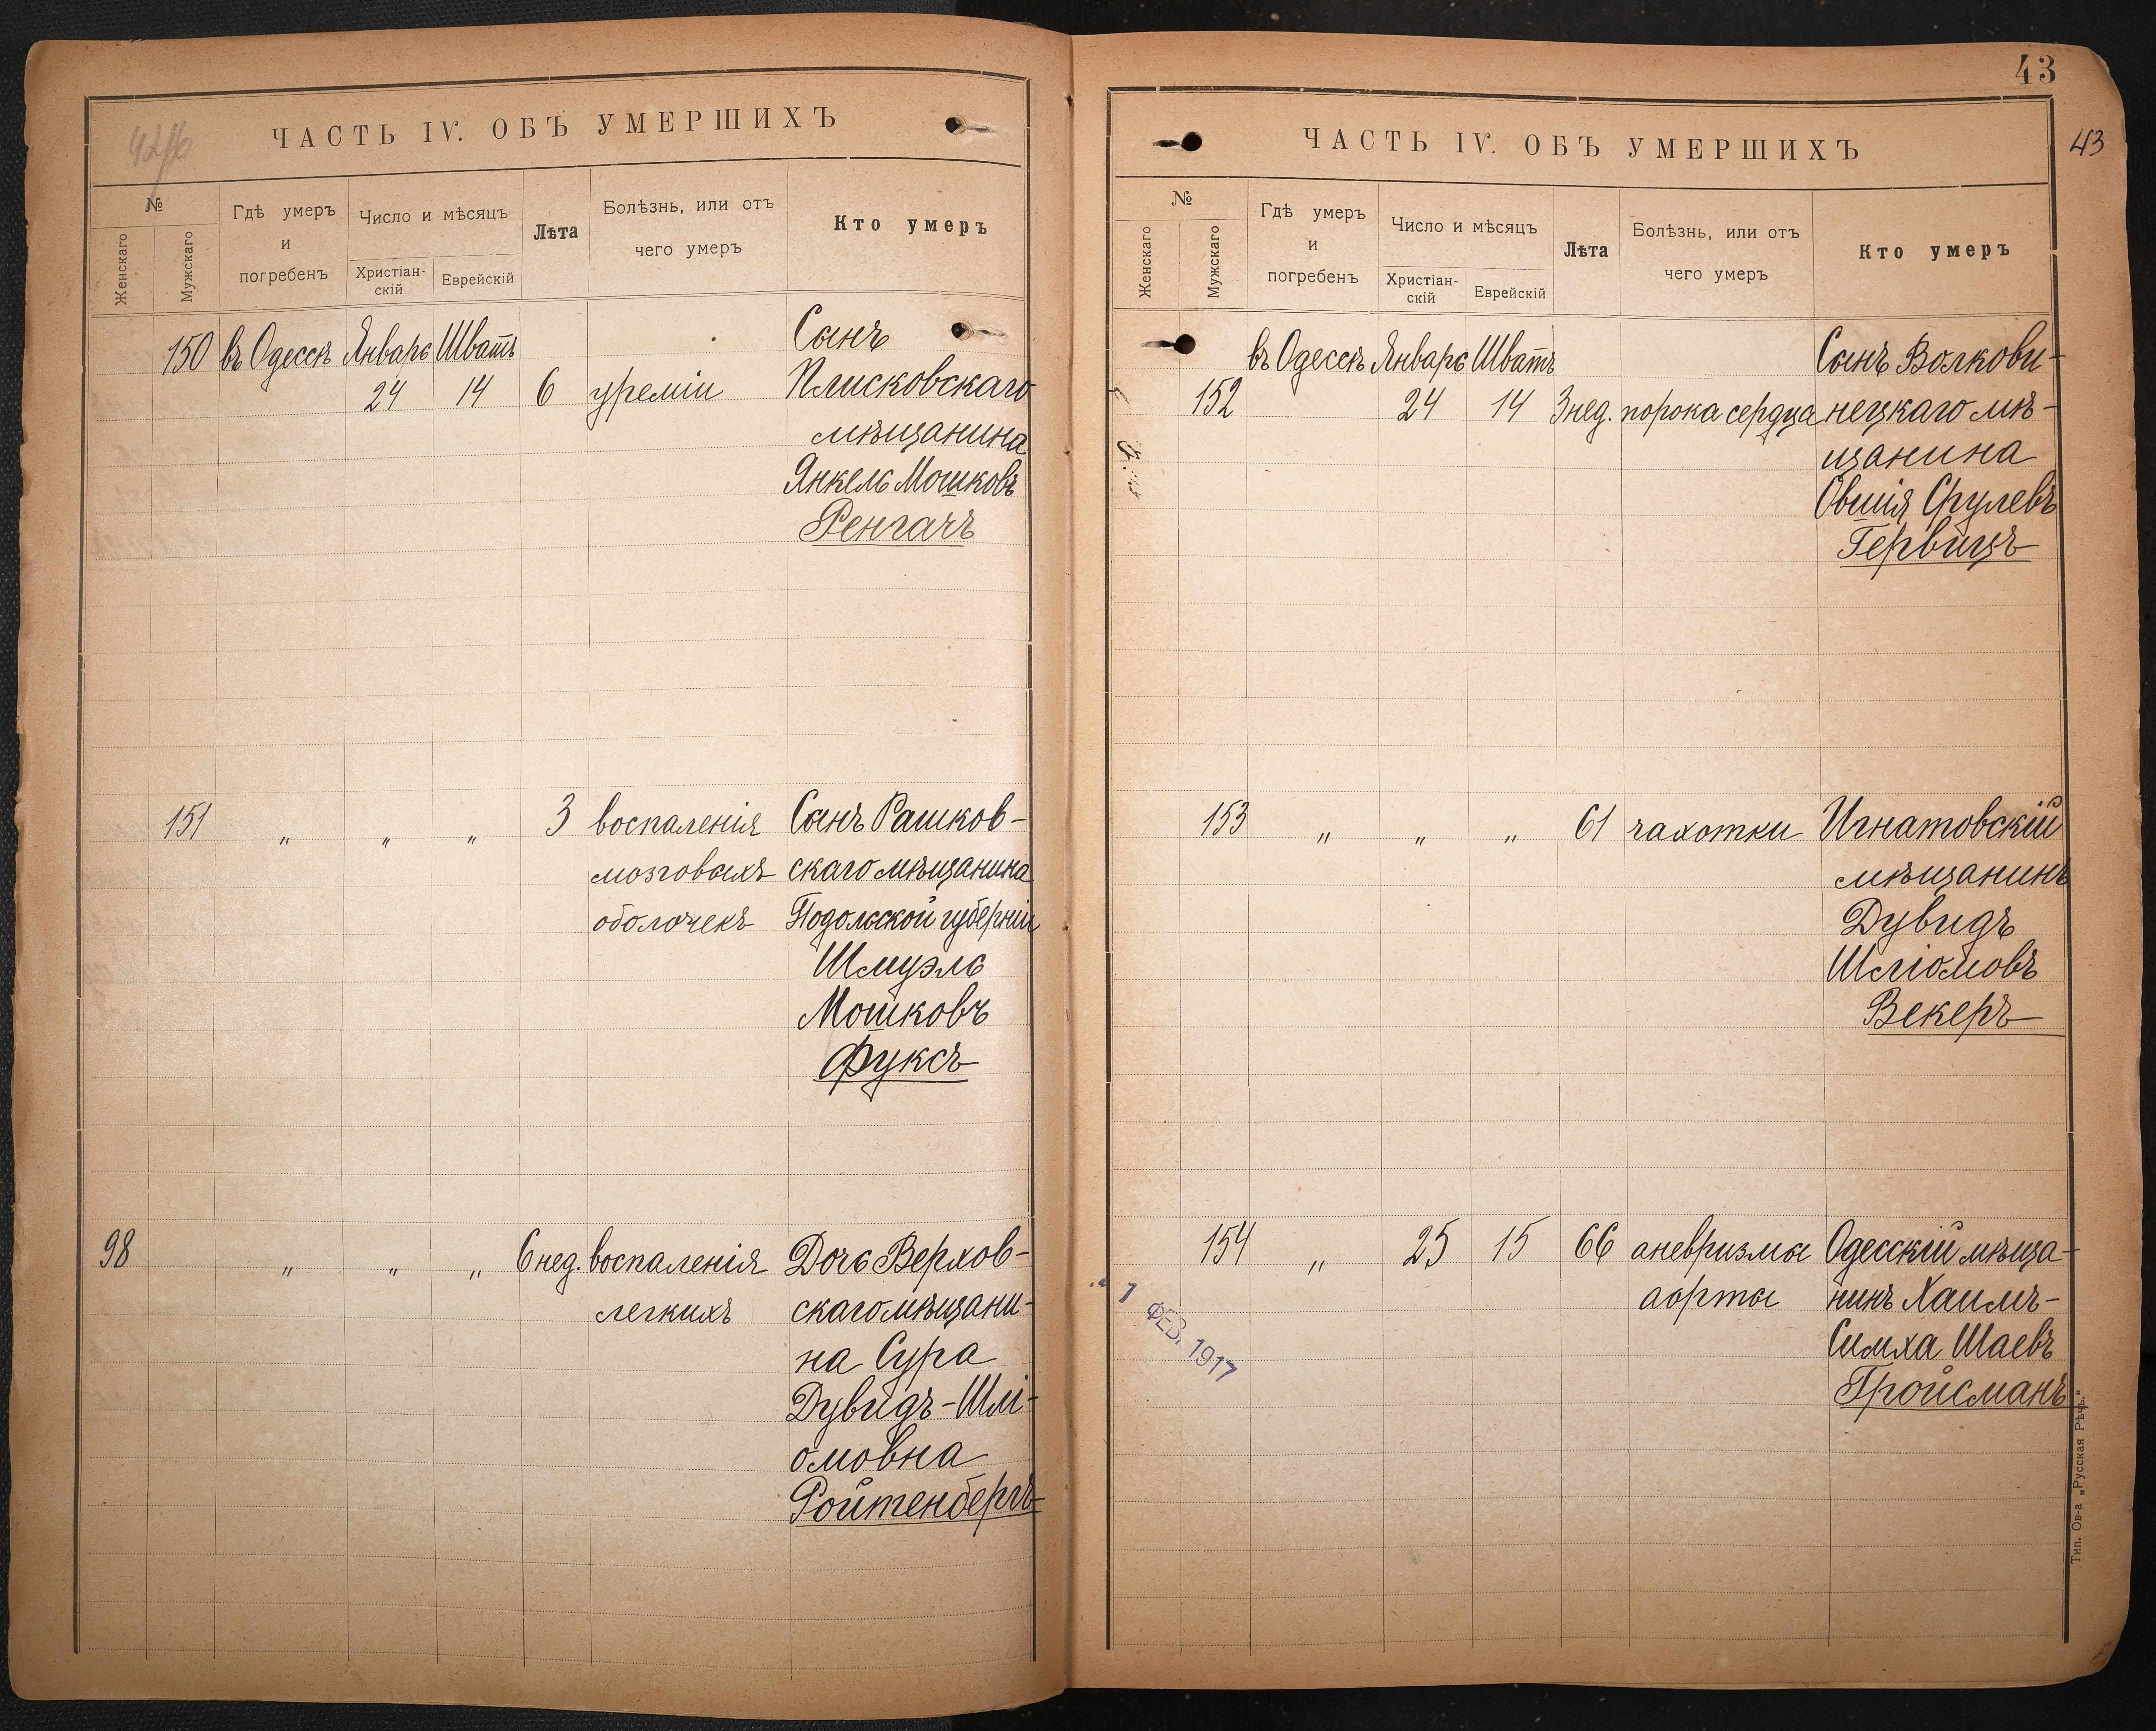 ЧАСТЬ IV. ОБЪ УМЕРШИХЪ
№
Женскаго
Мужскаго
Гдѣ умеръ
и
погребенъ
Число и мѣсяцъ
Христіан-
скій
Еврейскій
Лѣта
Болѣзнь, или отъ
чего умеръ
Кто умеръ
150 въ Одессѣ Январь Шватъ Сынъ
24 14 6 уреміи Плисковскаго
мѣщанина
Янкель Мошковъ
Ренгачъ
151 „ „ „ 3 воспаленія Сынъ Рашков-
мозговыхъ скаго мѣщанина
оболочекъ Подольской губерніи
Шмуэль
Мошковъ
Фуксъ
98 „ „ „ 6 нед. воспаленія Дочь Верхов-
легкихъ скаго мѣщани-
на Сура
Дувидъ-Шлі-
омовна
Ройтенбергъ
43
43
ЧАСТЬ IV. ОБЪ УМЕРШИХЪ
№
Женскаго
Мужскаго
Гдѣ умеръ
и
погребенъ
Число и мѣсяцъ
Христіан-
скій
Еврейскій
Лѣта
Болѣзнь, или отъ
чего умеръ
Кто умеръ
въ Одессѣ Январь Шватъ Сынъ Волкови-
152 24 14 3 нед. порока сердца нецкаго мѣ-
щанина
Овшія Срулевъ
Гервицъ
153 „ „ „ 61 чахотки Игнатовскій
мѣщанинъ
Дувидъ
Шліомовъ
Векеръ
154 „ 25 15 66 аневризмы Одесскій мѣща-
аорты нинъ Хаимъ-
Симха Шаевъ
Гройсманъ
1 ФЕВ. 1917
Тип. Ов-а „Русская Рѣчь.“